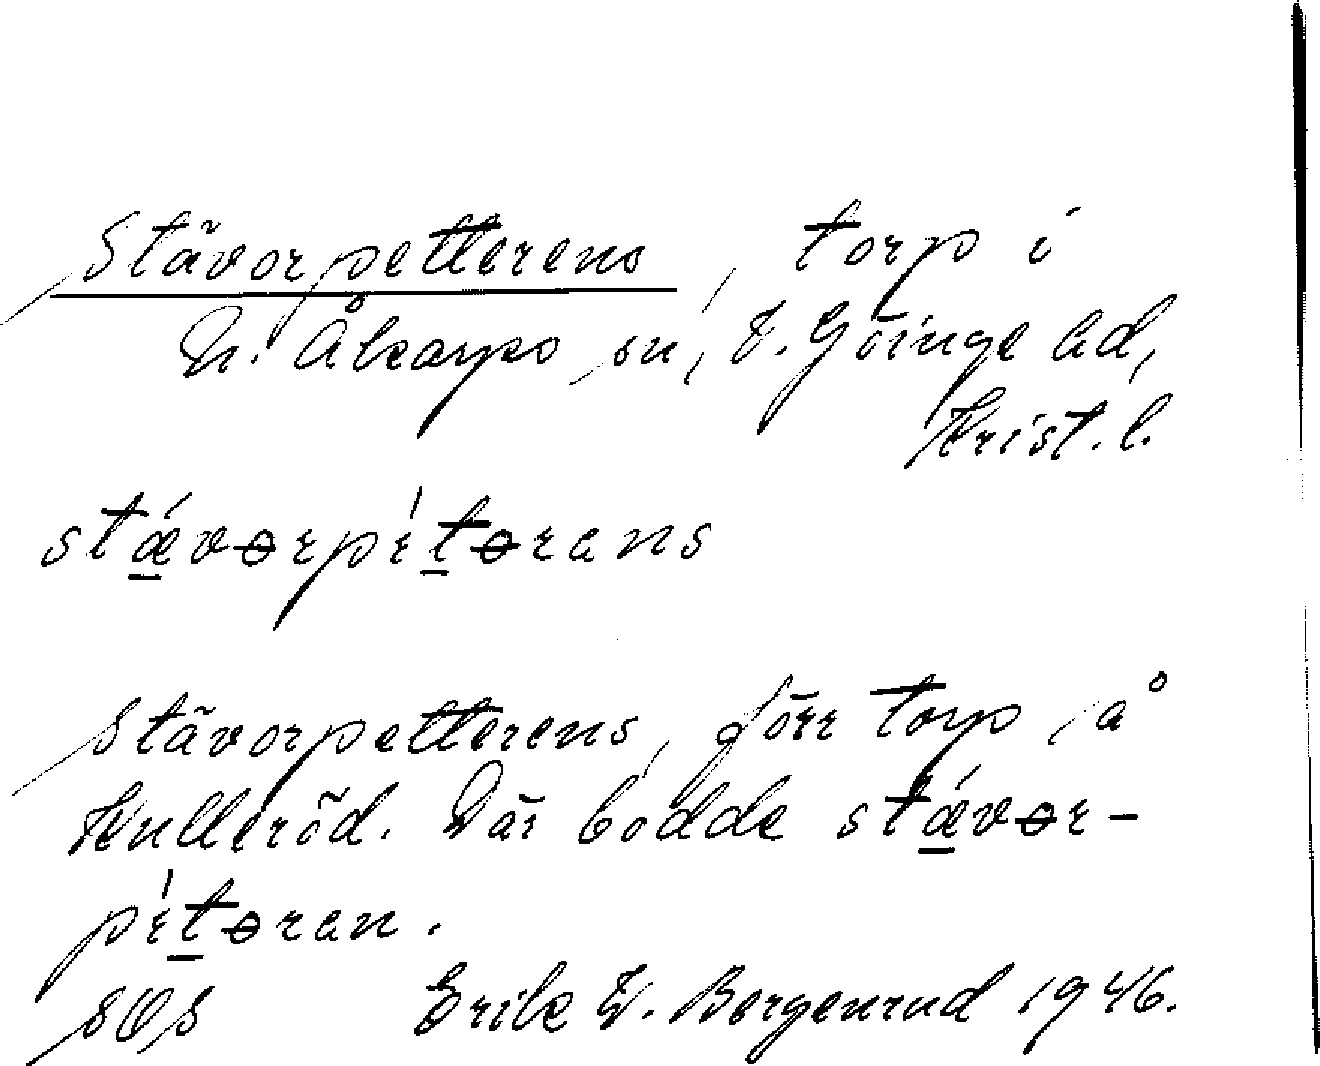 Stävorpetterens, torp i
N. Åkarps sn, V. Göinge hd,
Krist. l.
stǽvɵrpɛ́tɵrans
Stävorpetterens, förr torp å
Kulleröd. Där bodde stǽvɵr-
pɛ́tɵran.
SOS Erik W. Bergenrud 1946.